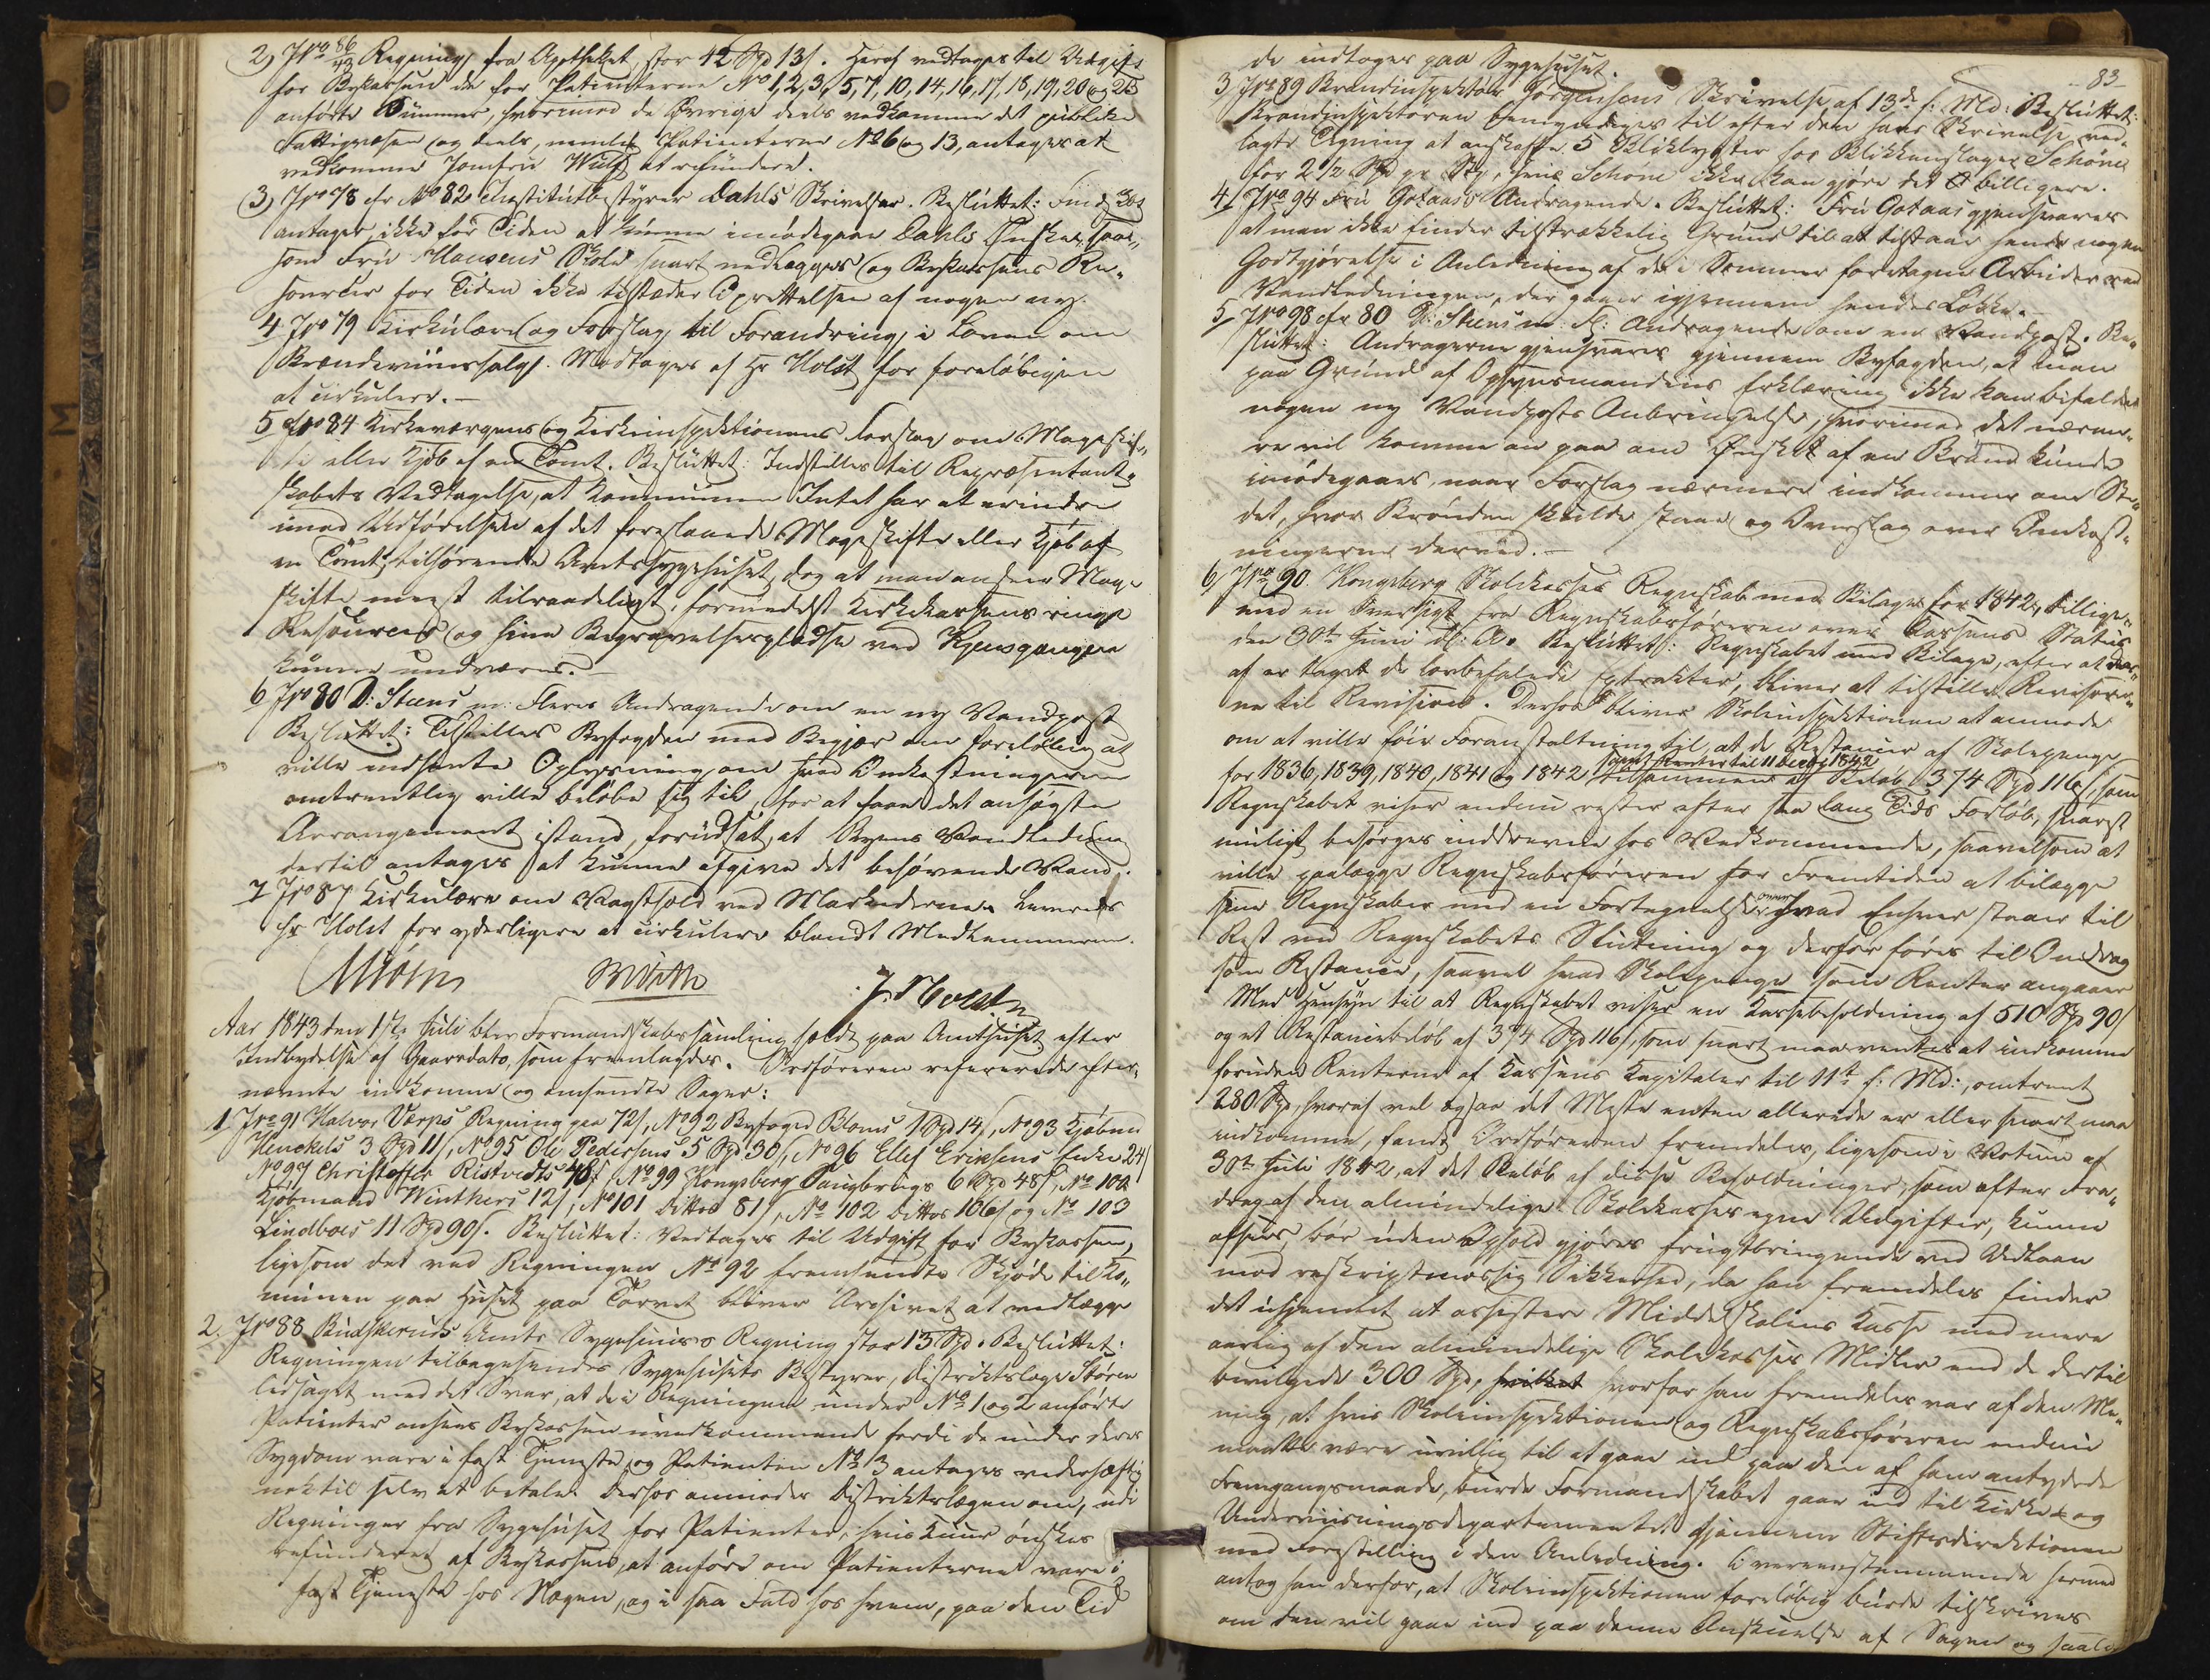 2) Jr№ 86/43 Regning fra Apotheket, stor 42 Spd 13 s. Heraf vedtages til Udgift
for Bykassen de for Patienterne № 1, 2, 3, 5, 7, 10, 14, 16, 17, 18, 19, 20 og 25
anførte Summer, hvorimod de Øvrige deels vedkomme det publike
Fattigvæsen og deels, nemlig Patienterne № 6 og 13, antages at
vedkomme Jomfru at refundere.
3) Jr№ 78 cfr № 82 Institutbestyrer Dahls Skrivelser. Besluttet:
antages ikke for Tiden at kunne imødegaae Dahls Ønsker, saa-
som Fru Hansens Skole snart nedlægges og Bykassens Re-
sourcer for Tiden ikke tilsteder Oprettelsen af nogen ny.
4 Jr№ 79 Cirkulære og Forslag til Forandring i Loven om
Brændeviinssalg. Modtages af Hr Holst for foreløbigen
at cirkulere. —
5 Jr№ 84 Kirkeværgens og Kirkeinspektionens Forslag om Mageskif-
te eller Kjøb af en Tomt. Besluttet: Indstilles til Repræsentant-
skabets Vedtagelse, at Kommunen Intet har at erindre
imod Udførelsen af det foreslaaede Mageskifte eller Kjøb af
en Tomt tilhørende Amtssygehuset, dog at man anseer Mage-
skifte meest tilraadeligt, formedelst Kirkekassens ringe
Resourcer og hiin Begravelsesplads ved
kunne undværes. —
6 Jr№ 80 D: Steens m: Fleres Andragende om en ny Vandpost
Besluttet: Tilstilles Byfogden med Begjær om foreløbig at
ville indhente Oplysning om hvad Omkostningerne
omtrentlig ville beløbe sig til, for at faae det ansøgte
Arrangement istand, forudsat, at Byens Vandledning
dertil antages at kunne afgive det behøvende Vand.
7 Jr№ 87 Cirkulære om Vagthold ved Markederne. Leveredes
Hr Holst for yderligere at cirkulere blandt Medlemmerne.
J. Holst
Aar 1843 den 17de Juli blev Formandskabssamling holdt paa Amthuset efter
Indbydelse af Gaarsdato, som fremlagdes. Ordføreren refererede efter-
nævnte indkomne og omsendte Sager:
1 Jr№ 91 Halvor Værps Regning paa 72 s, № 92 Byfoged Bloms 1 Spd 14 s, № 93 Kjøbmd
Henckels 3 Spd 11 s, № 95 Ole Pedersens 5 Spd 30 s, № 96 Ellef Eriksens 24 s
№ 97 Christoffer Ristvedts 48 s, № 99 Kongsberg Tangbrugs 6 Spd 48 s, № 100
Kjøbmand Winthers 12 s, № 101 Dittos 81 s, № 102 Dittos 106 s og № 103
Lindboes 11 Spd 90 s. Besluttet: Vedtages til Udgift for Bykassen,
ligesom det ved Regningen № 92 fremsendte Skjøde til Ko-
munen paa Huset paa Torvet bliver Archivet at vedlægge
2. Jr№ 88 Budskeruds Amts Sygehuuses Regning stor 13 Spd. Besluttet:
Regningen tilbagesendes Sygehusets Bestyrer, Distriktslæge Støren
ledsaget med det Svar, at de i Regningen under № 1 og 2 anførte
Patienter ansees Bykassen uvedkommende fordi de under deres
Sygdom vare i fast Tjeneste, og Patienten № 3 antages vederhæftig
nok til selv at betale. Derhos anmodes Distriktslægen om, udi
Regninger fra Sygehuset for Patienter, hvis Kuur ønskes
refunderet af Bykassen, at anføre om Patienterne vare i
fast Tjeneste hos Nogen, og i saa Fald hos hvem, paa den Tid
83
de indtoges paa Sygehuset.
3 Jr№ 89 Brandinspektør Jørgensens Skrivelse af 13de f: Md: Besluttet:
Brandinspektøren bemyndiges til efter den hans Skrivelse ved-
lagte Tegning at anskaffe 5 Bliklygter hos Blikkenslager Schøne
for 2 1/2 Spd pr Stk, hvis Schøne ikke kan gjøre det billigere.
4 Jr№ 94 Fru Gotaas's Andragende. Besluttet: Fru Gotaas gjensvares
at man ikke finder tilstrækkelig Grund til at tilstaae hende nogen
Godtgjørelse i Anledning af de i Sommer foretagne Arbeider ved
Vandledningen, der gaaer igjennem hendes Løkke. —
5 Jr№ 98 cfr 80 D: Steens m: Fl: Andragende om en Vandpost. Be-
sluttet: Andragerne gjensvares gjennem Byfogden, at man
paa Grund af Opsynsmandens Erklæring ikke kan bifalde
nogen ny Vandposts Anbringelse, hvorimod det nærme-
re vil komme an paa om Ønsket af en Brønd kunde
imødegaaes, naar Forslag nærmere indkommer om Ste-
det, hvor Brønden skulde staae og Overslag over Omkost-
ningerne derved. —
6 Jr№ 90. Kongsberg Skolekasses Regnskab med Bilage for 1842, tillige-
med en Oversigt fra Regnskabsføreren over Kassens Status
den 30te Juni d: A. Besluttet: Regnskabet med Bilage, efter at der-
af er taget de lovbefalede Extrakter, bliver at tilstille Revisorer-
ne til Revision. Derhos bliver Skoleinspektionen at anmode
om at ville føie Foranstaltning til, at de Restancer af Skolepenge
for 1836, 1839, 1840, 1841 og 1842 samt Renter til 11 Decbr 1842 tilsammen af Beløb 374 Spd 116 s, som
Regnskabet viser endnu rester efter saa lang Tids Forløb, snarest
muligt besørges inddrevne hos Vedkommende, saavelsom at
ville paalægge Regnskabsføreren for Fremtiden at bilægge
sine Regnskaber med en Fortegnelse over hvad Enhver staaer til
Rest ved Regnskabets Slutning og derfor føres til Omdrag
som Restance, saavel hvad Skolepenge som Renter angaaer
Med Hensyn til at Regnskabet viser en Kassebeholdning af 510 Spd 90 s
og et Restancebeløb af 374 Spd 116 s, som snart maa ventes at indkomme
foruden Renterne af Kassens Kapitaler til 11te f: Md:, omtrent
280 Spd, hvoraf vel ogsaa det Meste enten allerede er eller snart maa
indkomme, fandt Ordføreren fremdeles, ligesom i Votum af
30te Juli 1842, at det Beløb af disse Beholdninger, som efter Fra-
drag af den almindelige Skolekasses egne Udgifter, kunne
afsees, bør uden Ophold gjøres frugtbringende ved Udlaan
mod reskriptmæssig Sikkerhed, da han fremdeles finder
det uhjemlet at assistere Middelskolens Kasse med mere
aarlig af den almindelige Skolekasses Midler end de dertil
bevilgede 300 Spd, hvilket hvorfor han fremdeles var af den Me-
ning, at hvis Skoleinspektionen og Regnskabsføreren endnu
maatte være uvillig til at gaae ind paa den af ham antydede
Fremgangsmaade, burde Formandskabet gaae ind til Kirke- og
Underviisningsdepartementet gjennem Stiftsdirektionen
med Forestilling i den Anledning. Overeensstemmende hermed
antog han derfor, at Skoleinspektionen foreløbig burde tilskrives
om den vil gaae ind paa denne Anskuelse af Sagen og saale